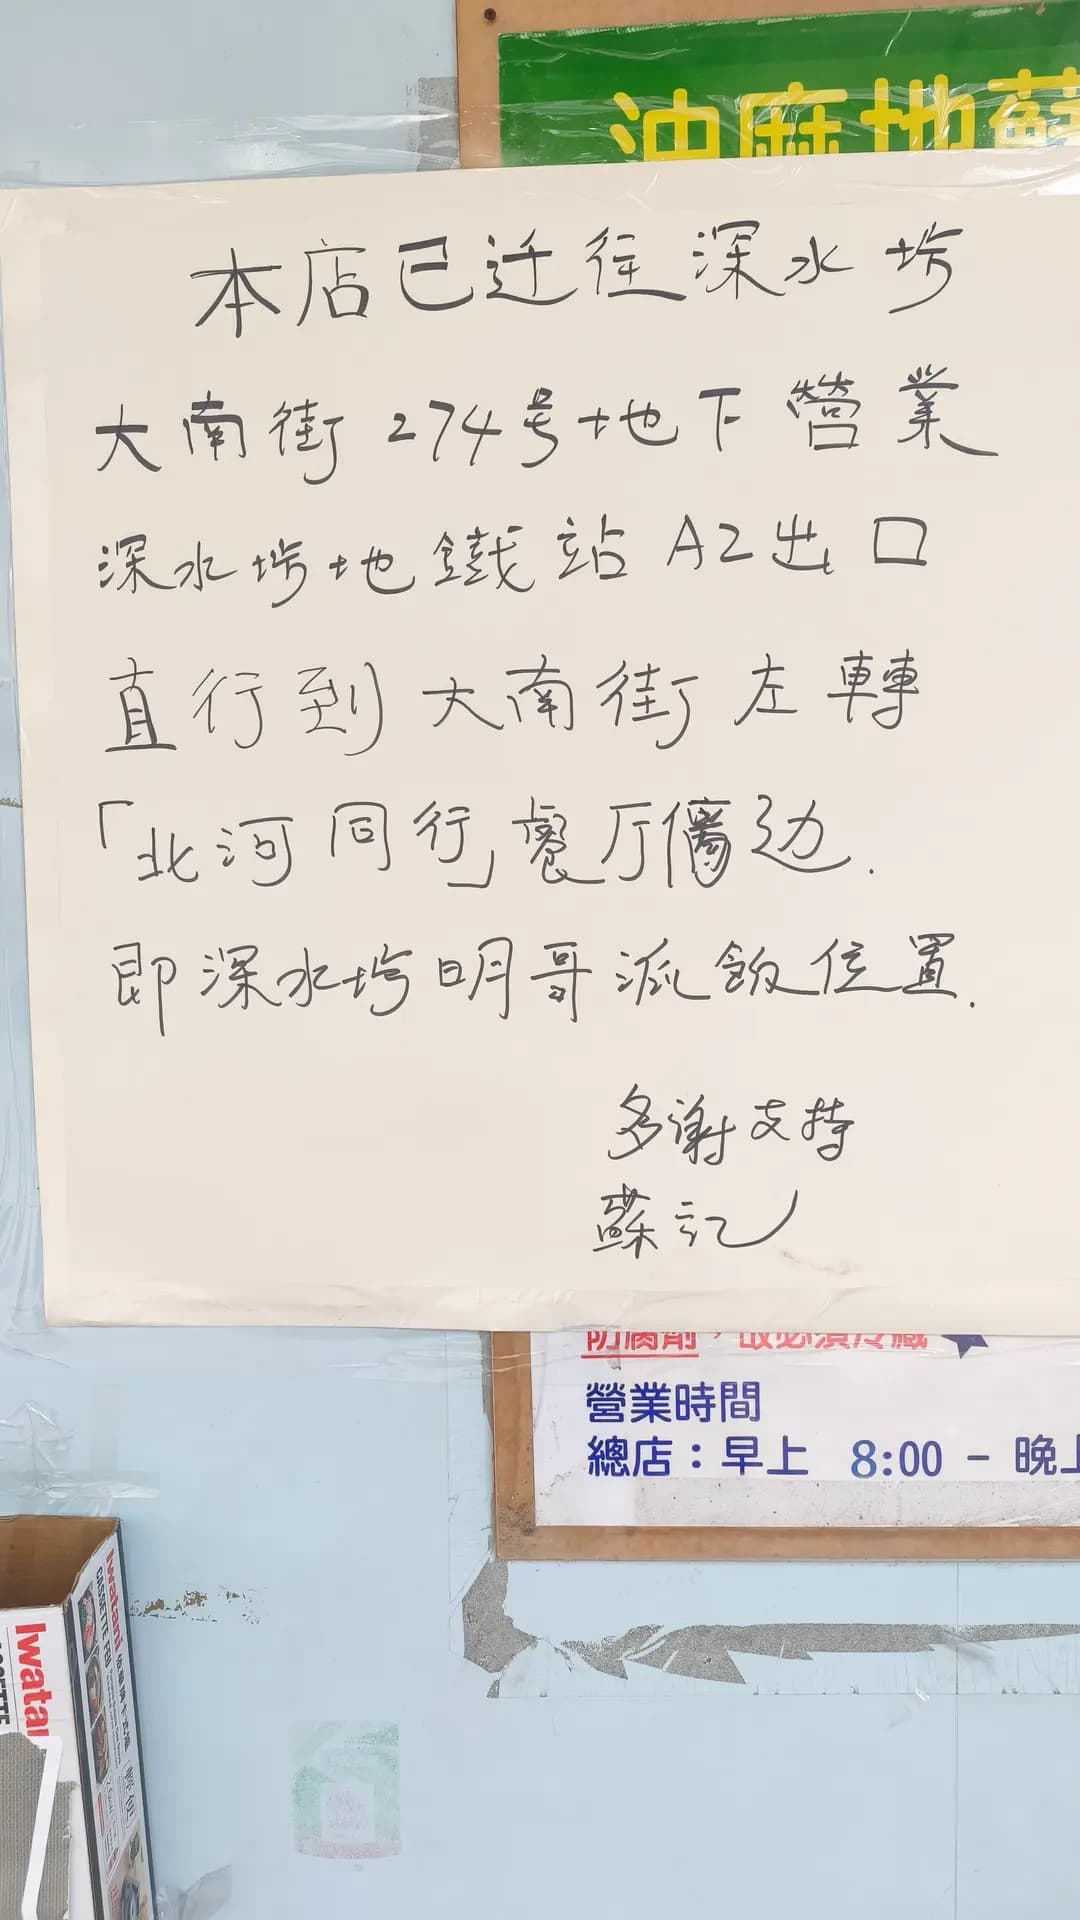 油麻地蘇
本店已迁往深水埗
大南街274号地下營業
深水埗地鐵站A2出口
直行到大南街左轉
「北河同行」餐厅僑边.
即深水埗明哥派飯位置.
多謝支持
蘇記
防腐劑，故必須冷藏
營業時間
總店：早上 8:00 - 晚上
Iwatani
CASSETTE FEU
Iwatan